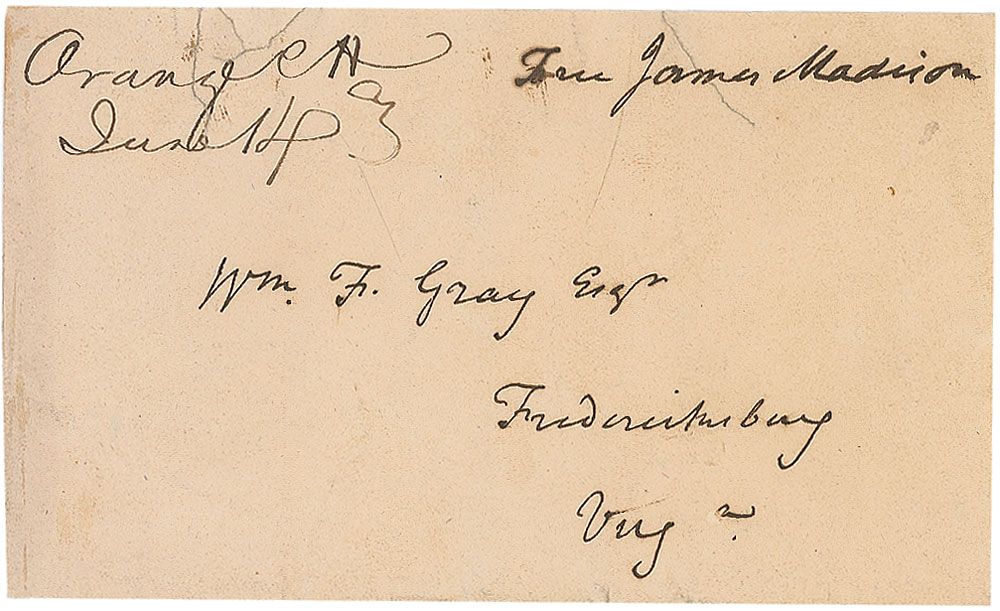 Orange C H
June 14
Free James Madison
Wm. F. Gray Esqr
Fredericksburg
Virga.